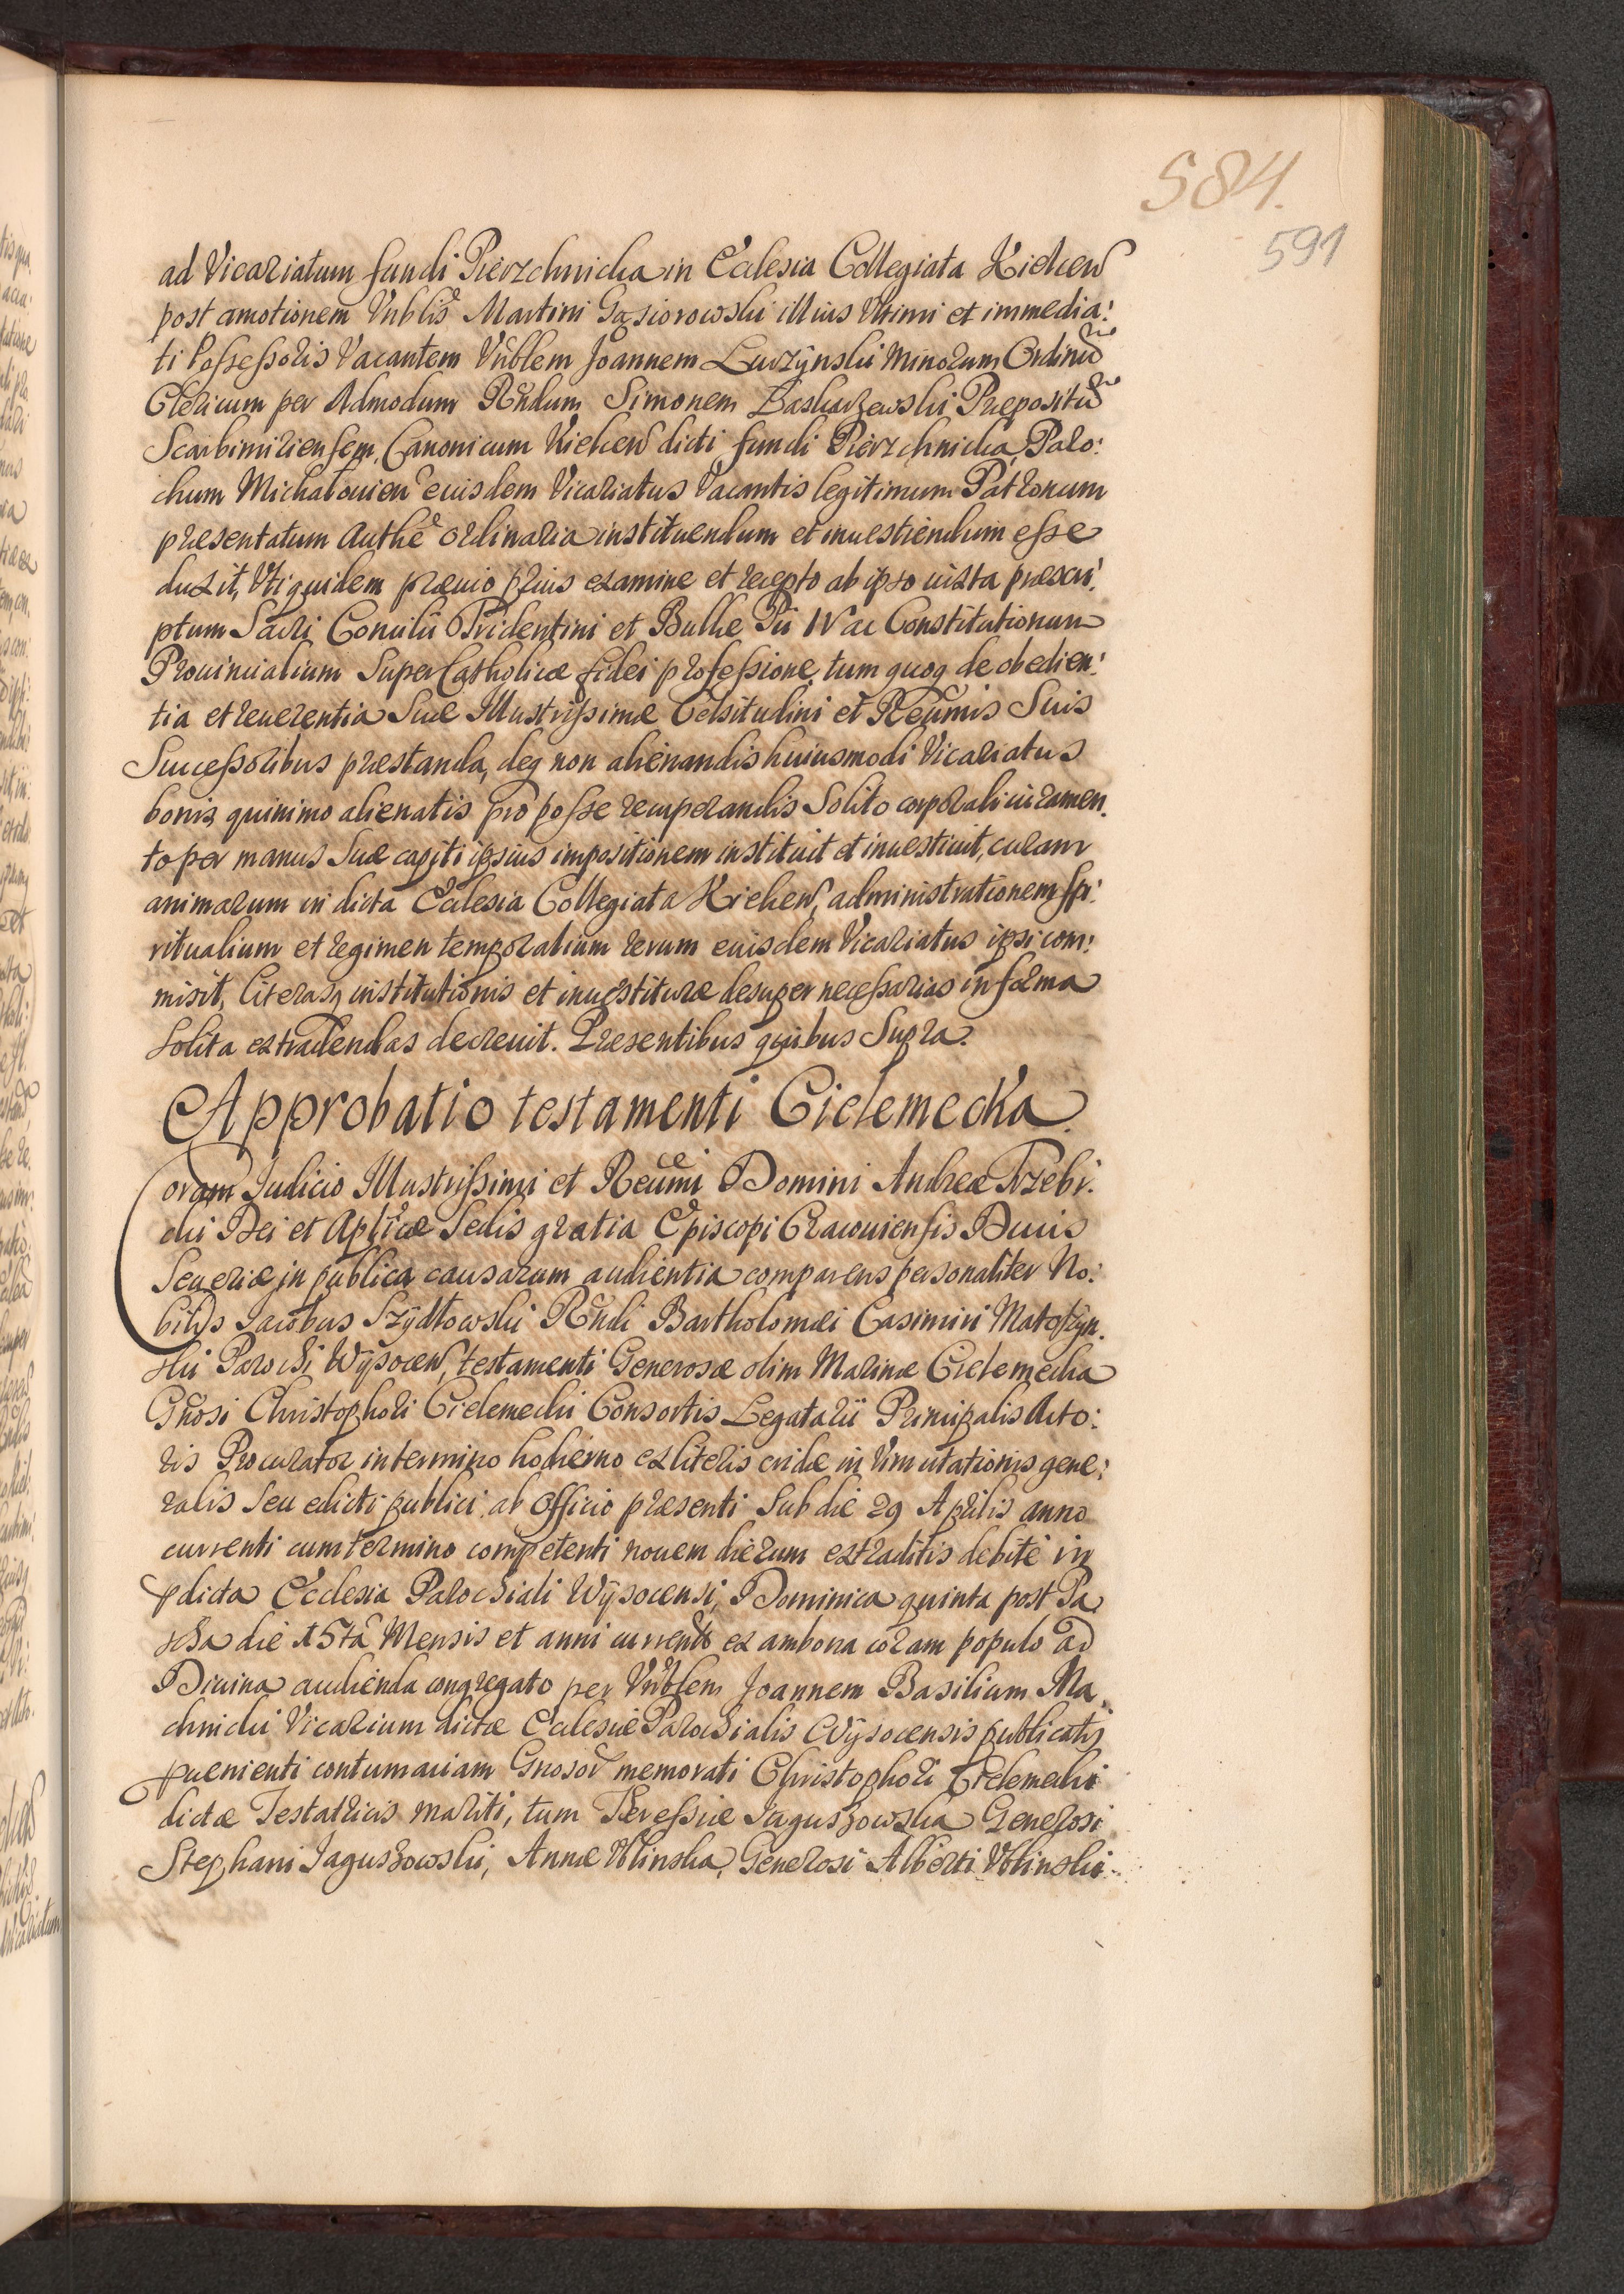 584.
591
ad Vicariatum fundi Pierzchnicka in Ecclesia Collegiata Kielcen
post amotionem Vnblis Martini Gąsiorowski illius Vltimi et immedia:
ti Possessoris Vacantem Vnblem Joannem Lurzÿnski Minorum Ordinū
Clericum per Admodum Rndum Simonem Baskarzewski Præpositū
Scarbimiriensem, Canonicum Kielcen dicti fundi Pierzchnicka, Paro:
chum Michałouien euisdem Vicariatus Vacantis legitimum Patronum
præsentatum Authe ordinaria instituendum et inuestiendum esse
duxit, Vti quidem præuio prius examine et recepto ab ipso iuxta præscri:
ptum Sacri Concilii Tridentini et Bullæ Pii IV ac Constitutionum
Prouincialium Super Catholicæ fidei professione, tum quoq de obedien:
tia et reuerentia Suæ Illustrissimæ Celsitudini et Reumis Suis
Successoribus præstanda, deq non alienandis huiusmodi Vicariatus
bonis, quinimo alienatis pro posse recuperandis Solito corporali iuramen.
to per manus Suæ capiti ipsius impositionem instituit et inuestiuit, curam
animarum in dicta Ecclesia Collegiata Kielcen, administrationem spi:
ritualium et regimen temporalium rerum euisdem Vicariatus ipsi com:
misit, Literasq institutionis et inuestituræ desuper necessarias in forma
Solita extradendas decreuit. Præsentibus quibus Supra.
Approbatio testamenti Cielemecka.
Coram Judicio Illustrissimi et Reumi Domini Andreæ Trzebi.
cki Dei et Aplicæ Sedis gratia Episcopi Cracouiensis Ducis
Seueriæ in publica causarum audientia comparens personaliter No:
bilis Jacobus Szÿdłowski Rndi Bartholomæi Casimiri Matoszÿn.
ski Parochi Wÿsocen, testamenti Generosæ olim Marinæ Cielemecka
Gnosi Christophori Cielemecki Consortis Legatarii Principalis Acto:
ris Procurator in termino hodierno ex literis cridæ in Vim citationis gene:
ralis Seu edicti publici, ab Officio præsenti Sub die 29 Aprilis anno
currenti cum termino competenti nouem dierum extraditis debite in
pdicta Ecclesia Parochiali Wÿsocensi, Dominica quinta post Pa
scha die 15ta Mensis et anni currents ex ambona coram populo ad
Diuina audienda congregato per Vnblem Joannem Basilium Ma.
chnicki Vicarium dictæ Ecclesiæ Parochialis Wÿsocensis publicatis
puenienti contumaciam Gnosor memorati Christophori Cielemecki
dictæ Testatricis mariti, tum Teressiæ Jaguszowska Generosi
Stephani Jaguszowski, Annæ Vlinska, Generosi Alberti Vlinski